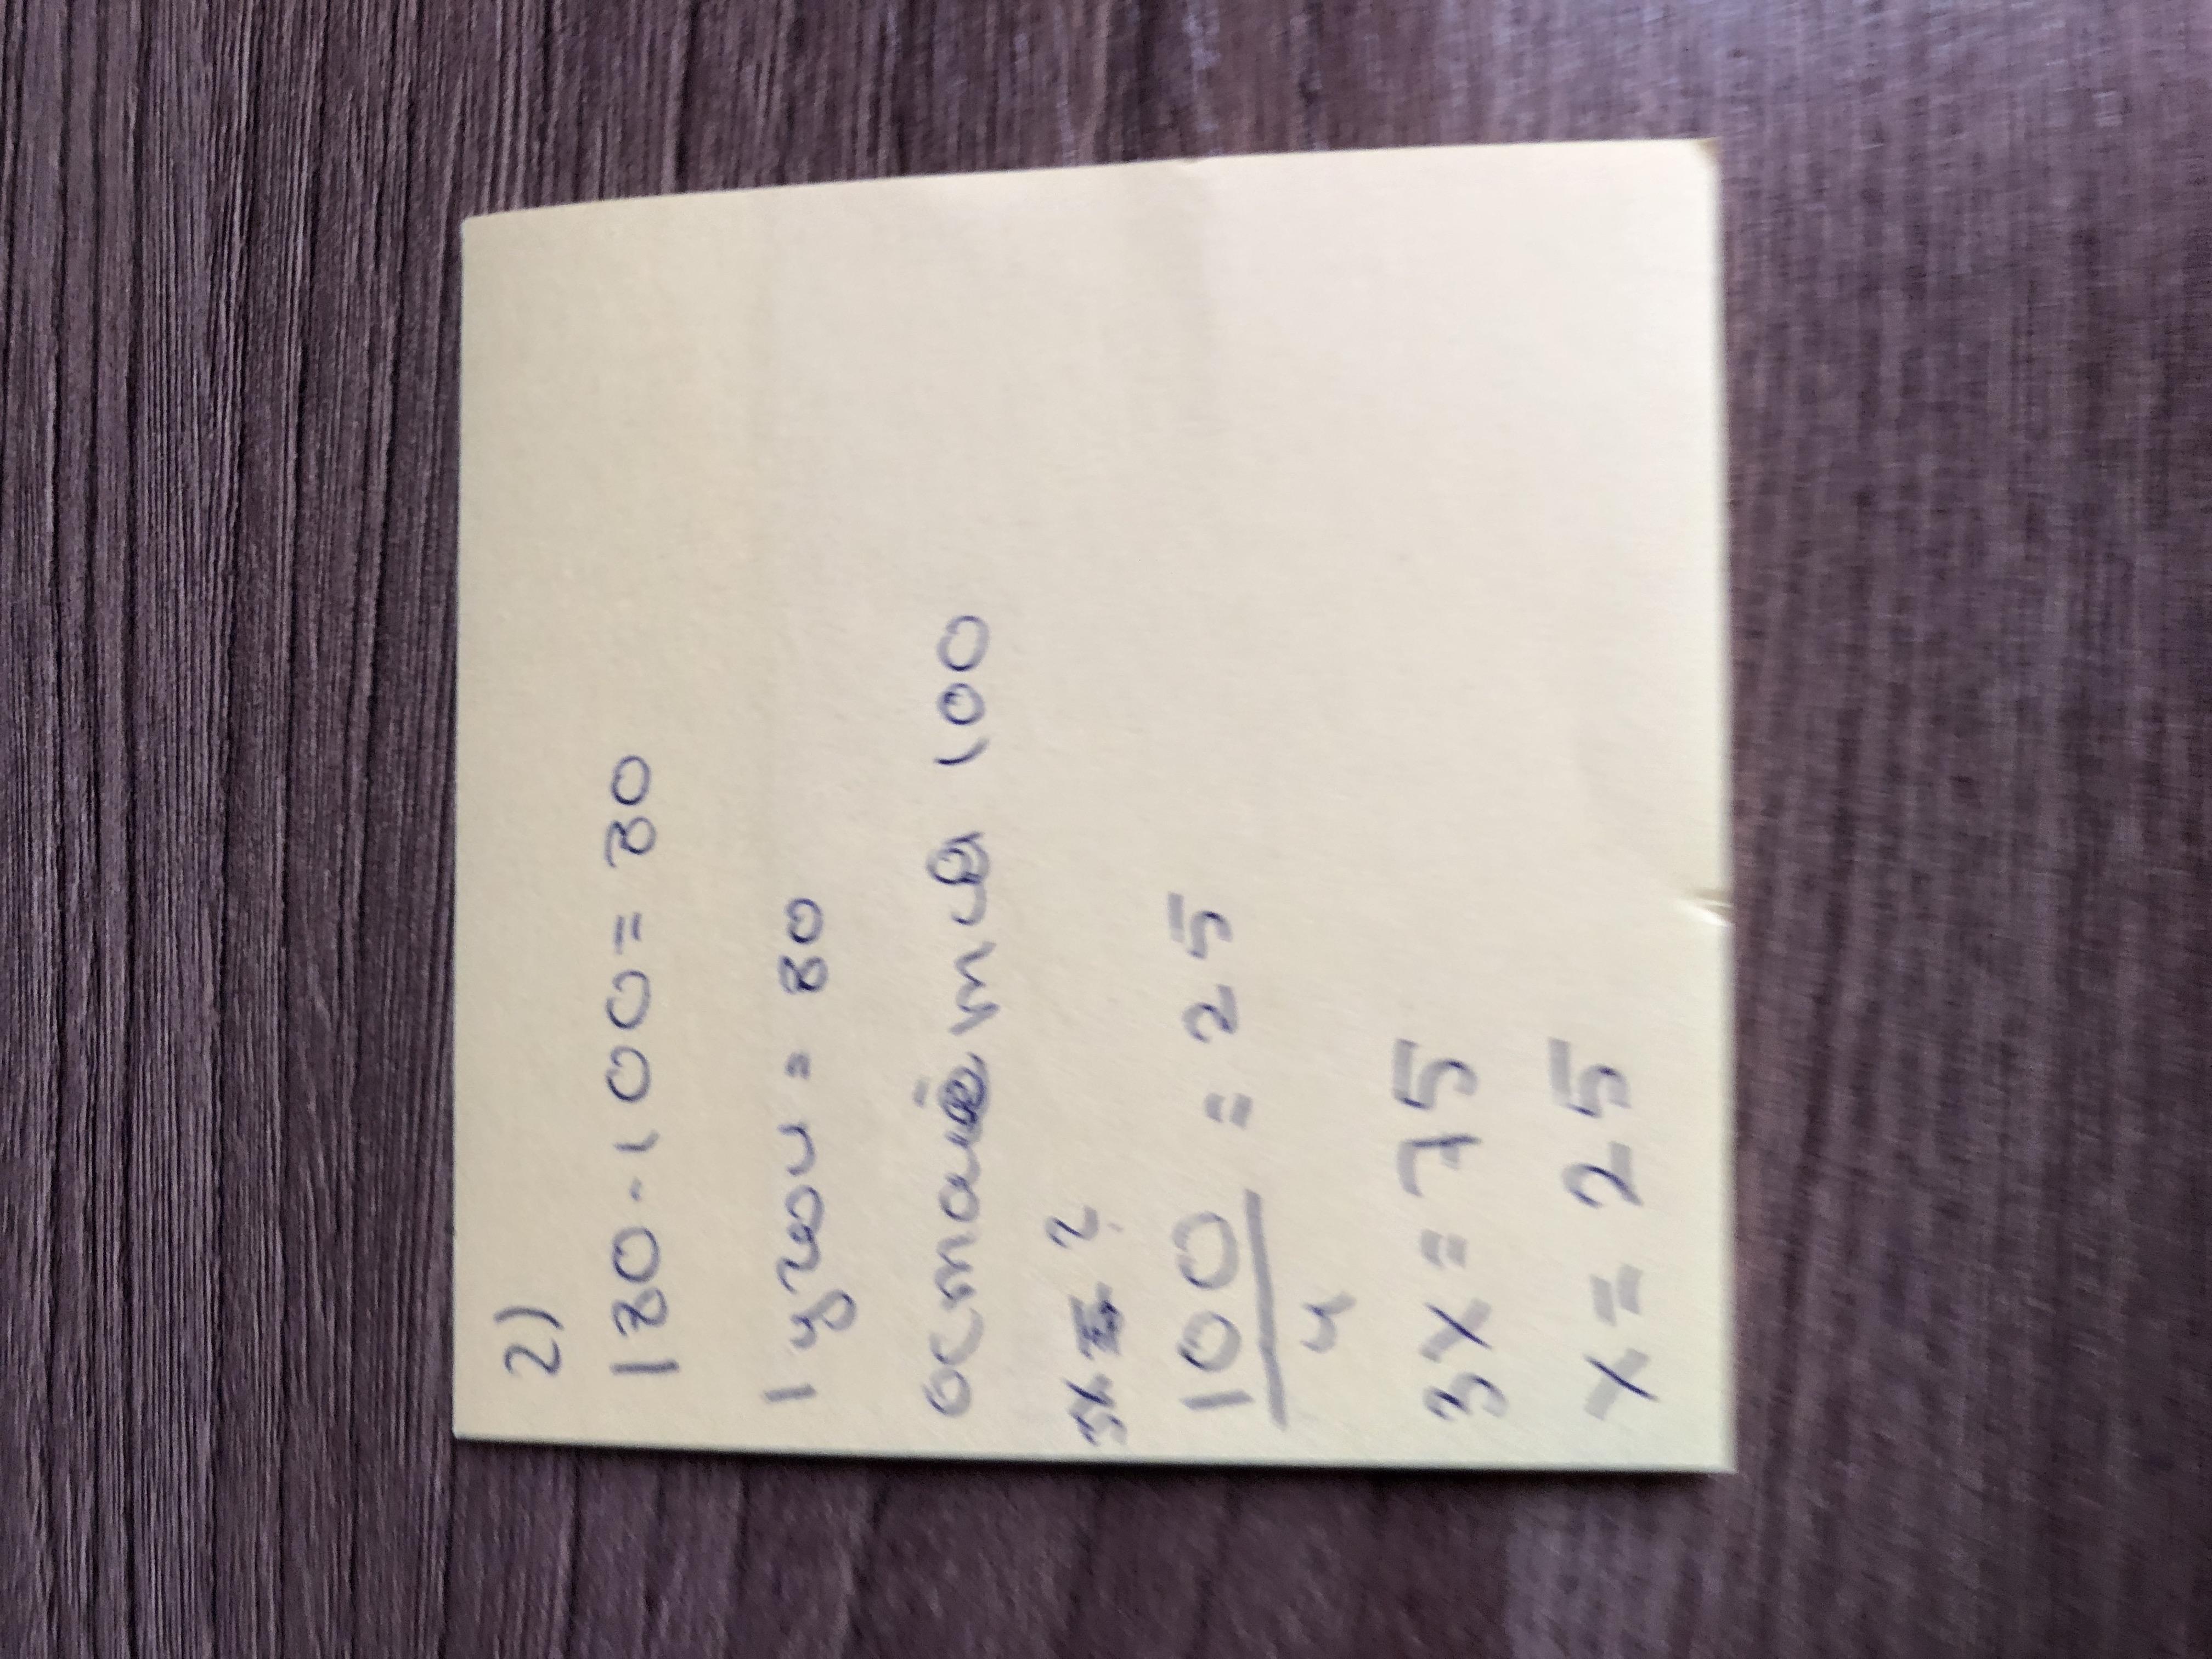 2)
180-100=80
1 угол = 80
остаётся 100
3x = ?
100
4
= 25
3x = 75
x = 25